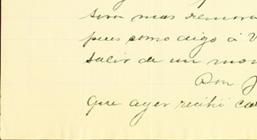 son mas remora
pues como digo á V
salir de un mom
Don J
que ayer recibi ca